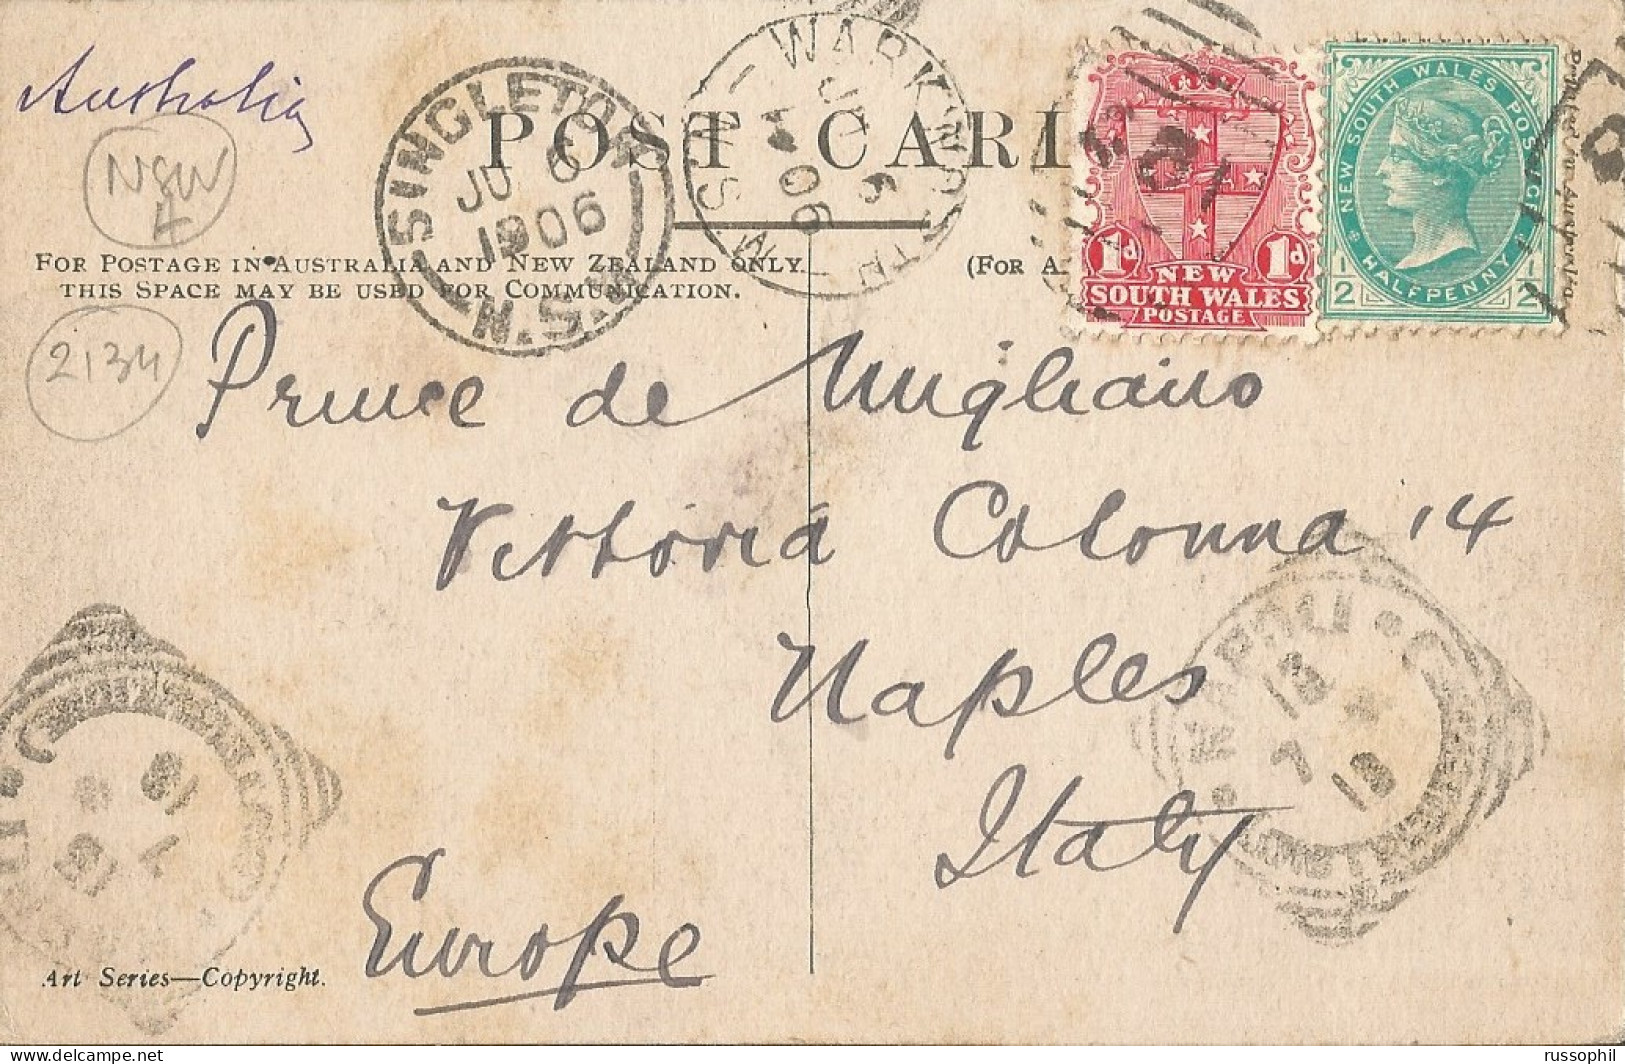 Australia
NSW
4
SINGLETON
JU 6
1906
N.S.W.
WARKWORTH
JU 6
06
N.S.W.
POST CARD
1d 1d
NEW
SOUTH WALES
POSTAGE
NEW SOUTH WALES POSTAGE
HALFPENNY
1/2 1/2
FOR POSTAGE IN AUSTRALIA AND NEW ZEALAND ONLY
THIS SPACE MAY BE USED FOR COMMUNICATION.
(FOR A
2134
Prince de Migliano
Vittoria Colonna 14
Naples
Italy
Europe
NAPOLI
13
7
Art Series—Copyright.
www.delcampe.net
russophil